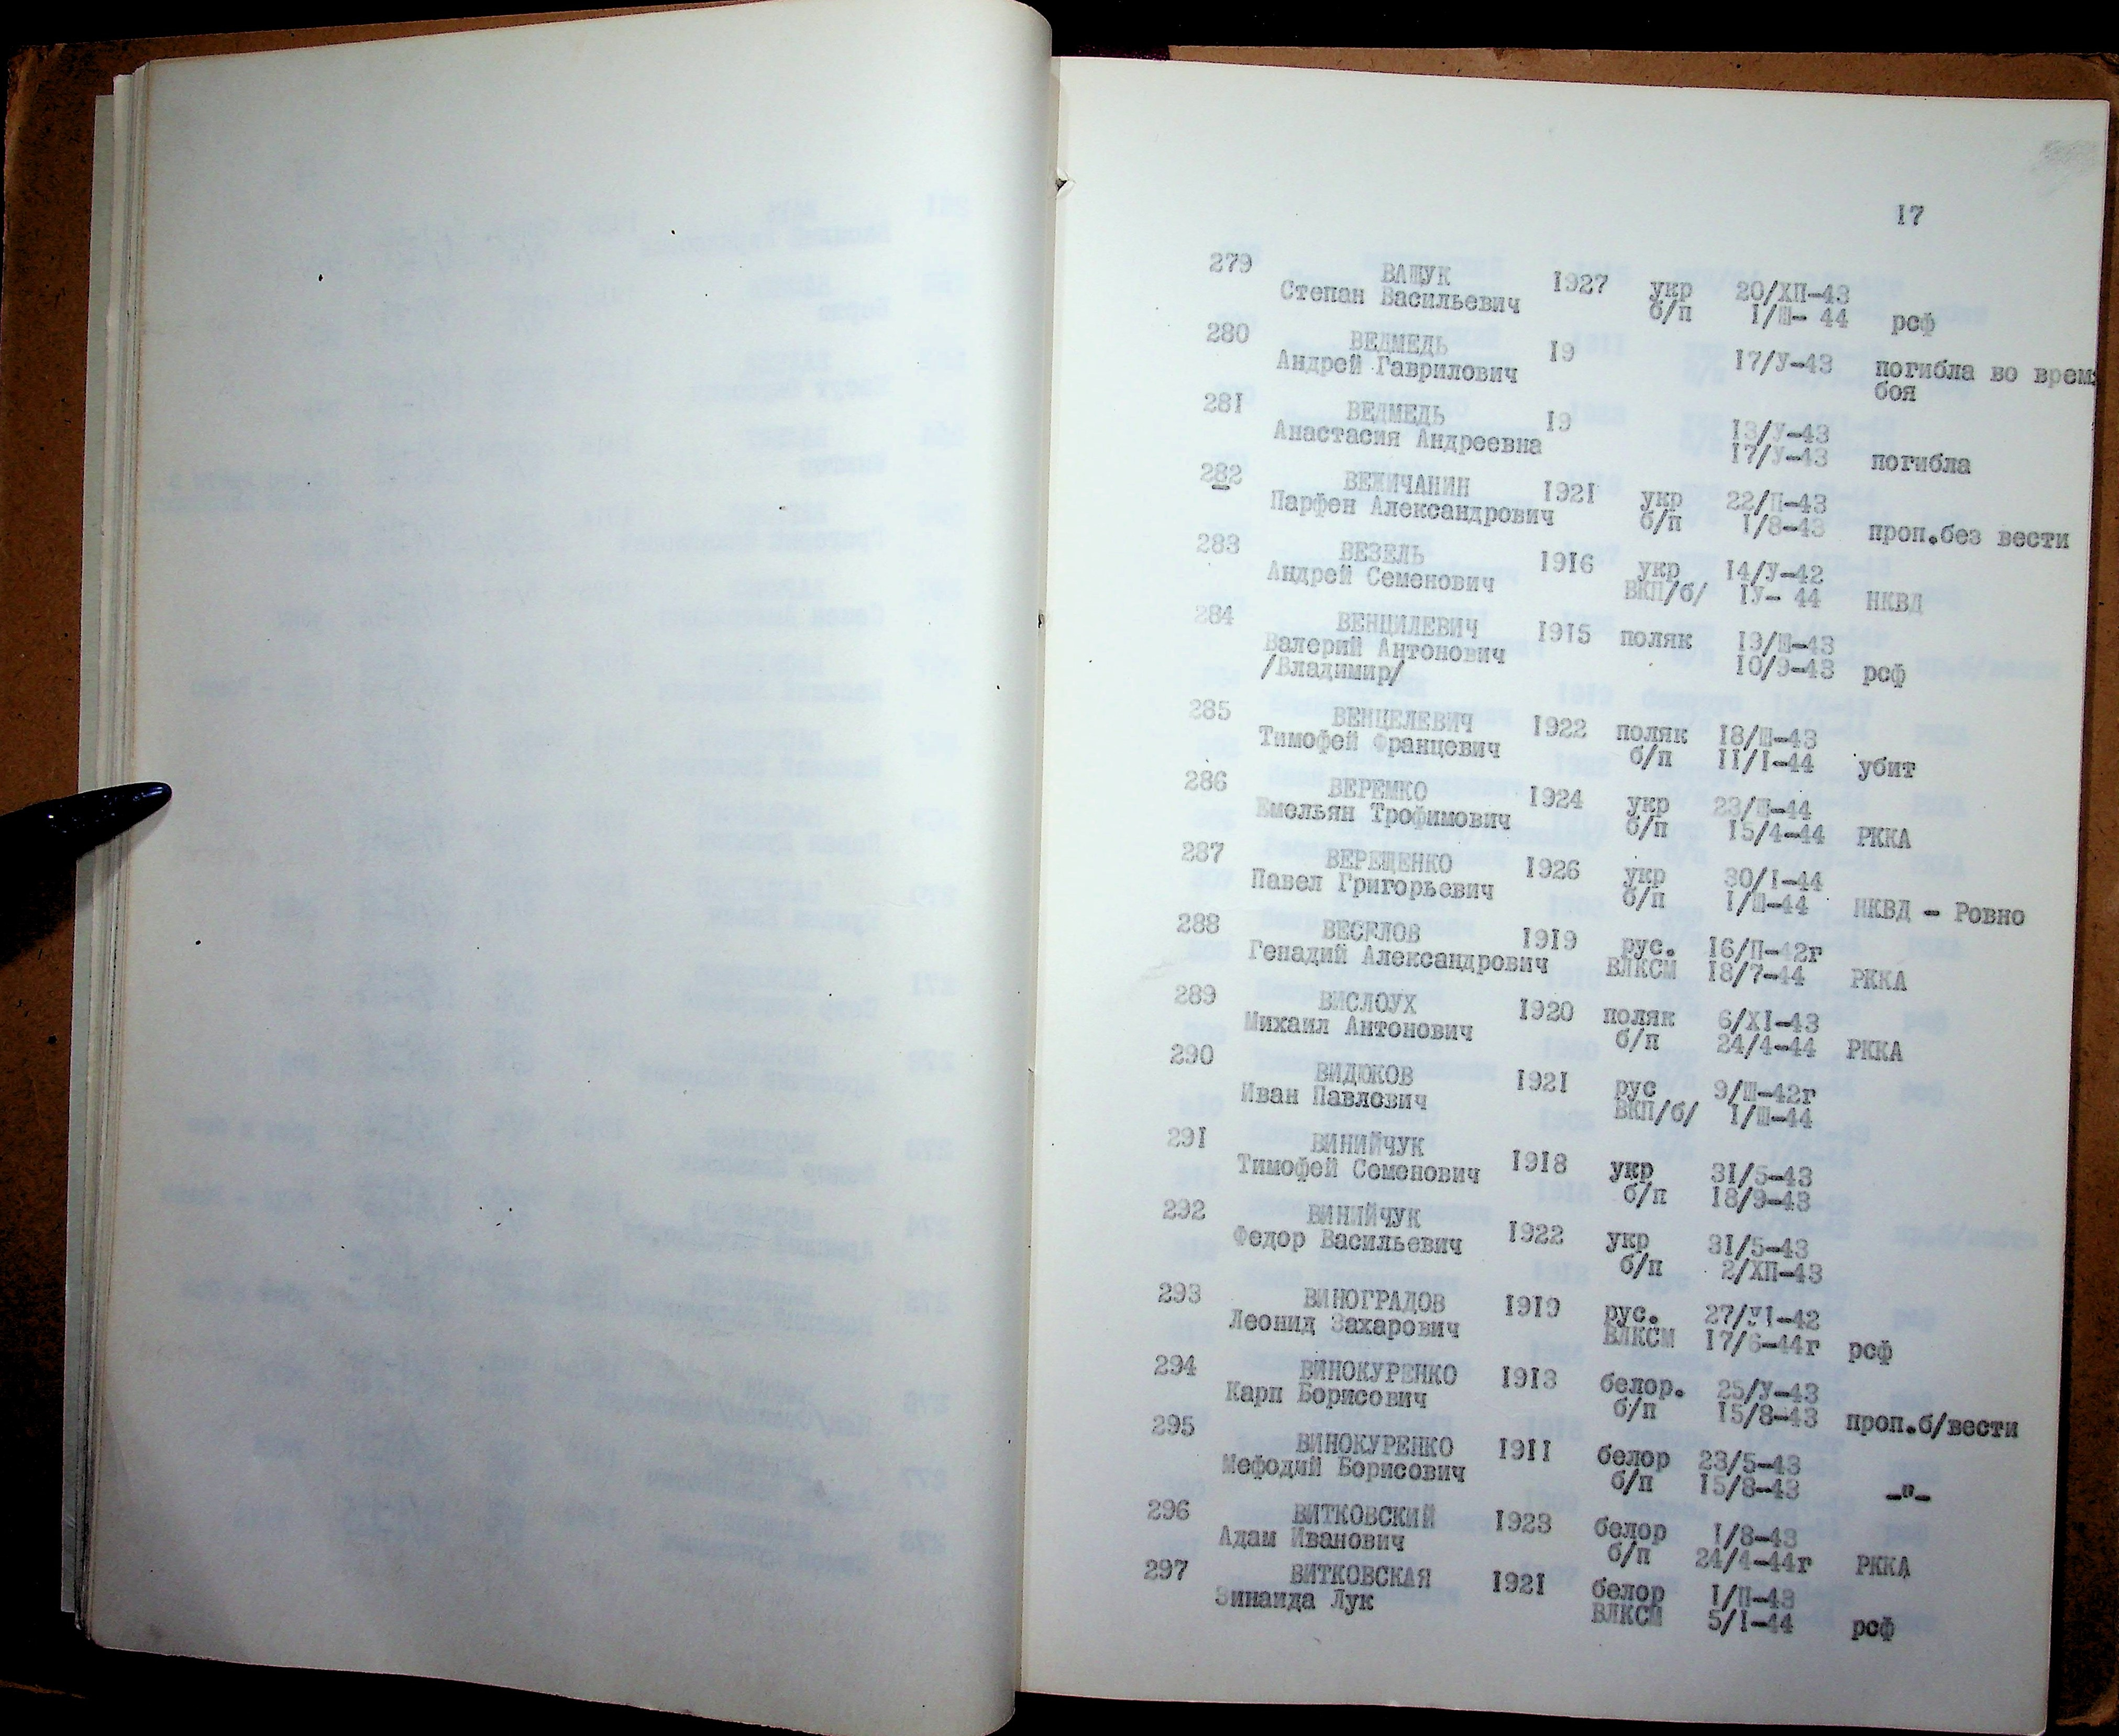 17
279 ВАЩУК 1927 укр 20/ХП-43
Степан Васильевич б/п I/Ш- 44 рсф
280 ВЕДМЕДЬ 19 17/У-43 погибла во врем
Андрей Гаврилович боя
281 ВЕДМЕДЬ 19 13/У-43
Анастасия Андреевна 17/У-43 погибла
282 ВЕЖИЧАНИН 1921 укр 22/П-43
Парфен Александрович б/п I/8-43 проп.без вести
283 ВЕЗЕЛЬ 1916 укр 14/У-42
Андрей Семенович ВКП/б/ IУ- 44 НКВД
284 ВЕНЦИЛЕВИЧ 1915 поляк 19/Ш-43
Валерий Антонович 10/9-43 рсф
/Владимир/
285 ВЕНЦЕЛЕВИЧ 1922 поляк 18/Ш-43
Тимофей Францевич б/п II/I-44 убит
286 ВЕРЕМКО 1924 укр 23/Ш-44
Емельян Трофимович б/п 15/4-44 РККА
287 ВЕРЕЩЕНКО 1926 укр 30/I-44
Павел Григорьевич б/п I/Ш-44 НКВД - Ровно
288 ВЕСЕЛОВ 1919 рус. 16/П-42г
Генадий Александрович ВЛКСМ 18/7-44 РККА
289 ВИСЛОУХ 1920 поляк 6/XI-43
Михаил Антонович б/п 24/4-44 РККА
290 ВИДЮКОВ 1921 рус 9/Ш-42г
Иван Павлович ВКП/б/ I/Ш-44
291 ВИНИЙЧУК 1918 укр 31/5-43
Тимофей Семенович б/п 18/9-43
292 ВИНИЙЧУК 1922 укр 31/5-43
Федор Васильевич б/п 2/ХП-43
293 ВИНОГРАДОВ 1919 рус. 27/УI-42
Леонид Захарович ВЛКСМ 17/6-44г рсф
294 ВИНОКУРЕНКО 1913 белор. 25/У-43
Карп Борисович б/п 15/8-43 проп.б/вести
295 ВИНОКУРЕНКО 1911 белор 23/5-43
Мефодий Борисович б/п 15/8-43 -"-
296 ВИТКОВСКИЙ 1923 белор I/8-43
Адам Иванович б/п 24/4-44г РККА
297 ВИТКОВСКАЯ 1921 белор I/П-43
Зинаида Лук ВЛКСМ 5/I-44 рсф